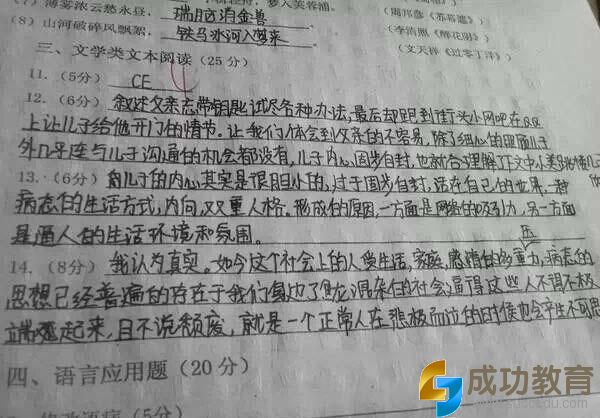 (7) 薄雾浓云愁永昼, 瑞脑消金兽 (李清照《醉花阴》)
(8) 山河破碎风飘絮, 铁马冰河入梦来 (文天祥《过零丁洋》)
(周邦彦《苏幕遮》)
三、文学类文本阅读(25分)
11. (5分) CE
12. (6分) 叙述父亲忘带钥匙试尽各种办法,最后却跑到街头小网吧在QQ
上让儿子给他开门的情节。让我们体会到父亲的不容易,除了细心的照顾儿子
外几乎连与儿子沟通的机会都没有,儿子内心固步自封,也就
13. (6分) 儿子的内心其实是很胆小的,过于固步自封,活在自己的世界,一种
病态的生活方式,内向,双重人格。形成的原因,一方面是网络的吸引力,另一方面
是逼人的生活环境和氛围。
14. (8分) 我认为真实。如今这个社会上的人受生活,家庭,感情的多重压力,病态的
思想已经普遍的存在于我们身边了,混杂的社会逼得这些人不得不极
端起来,且不说颓废,就是一个正常人在悲极而泣的时候也会产生不可思
四、语言应用题(20分)
(5分)
成功教育